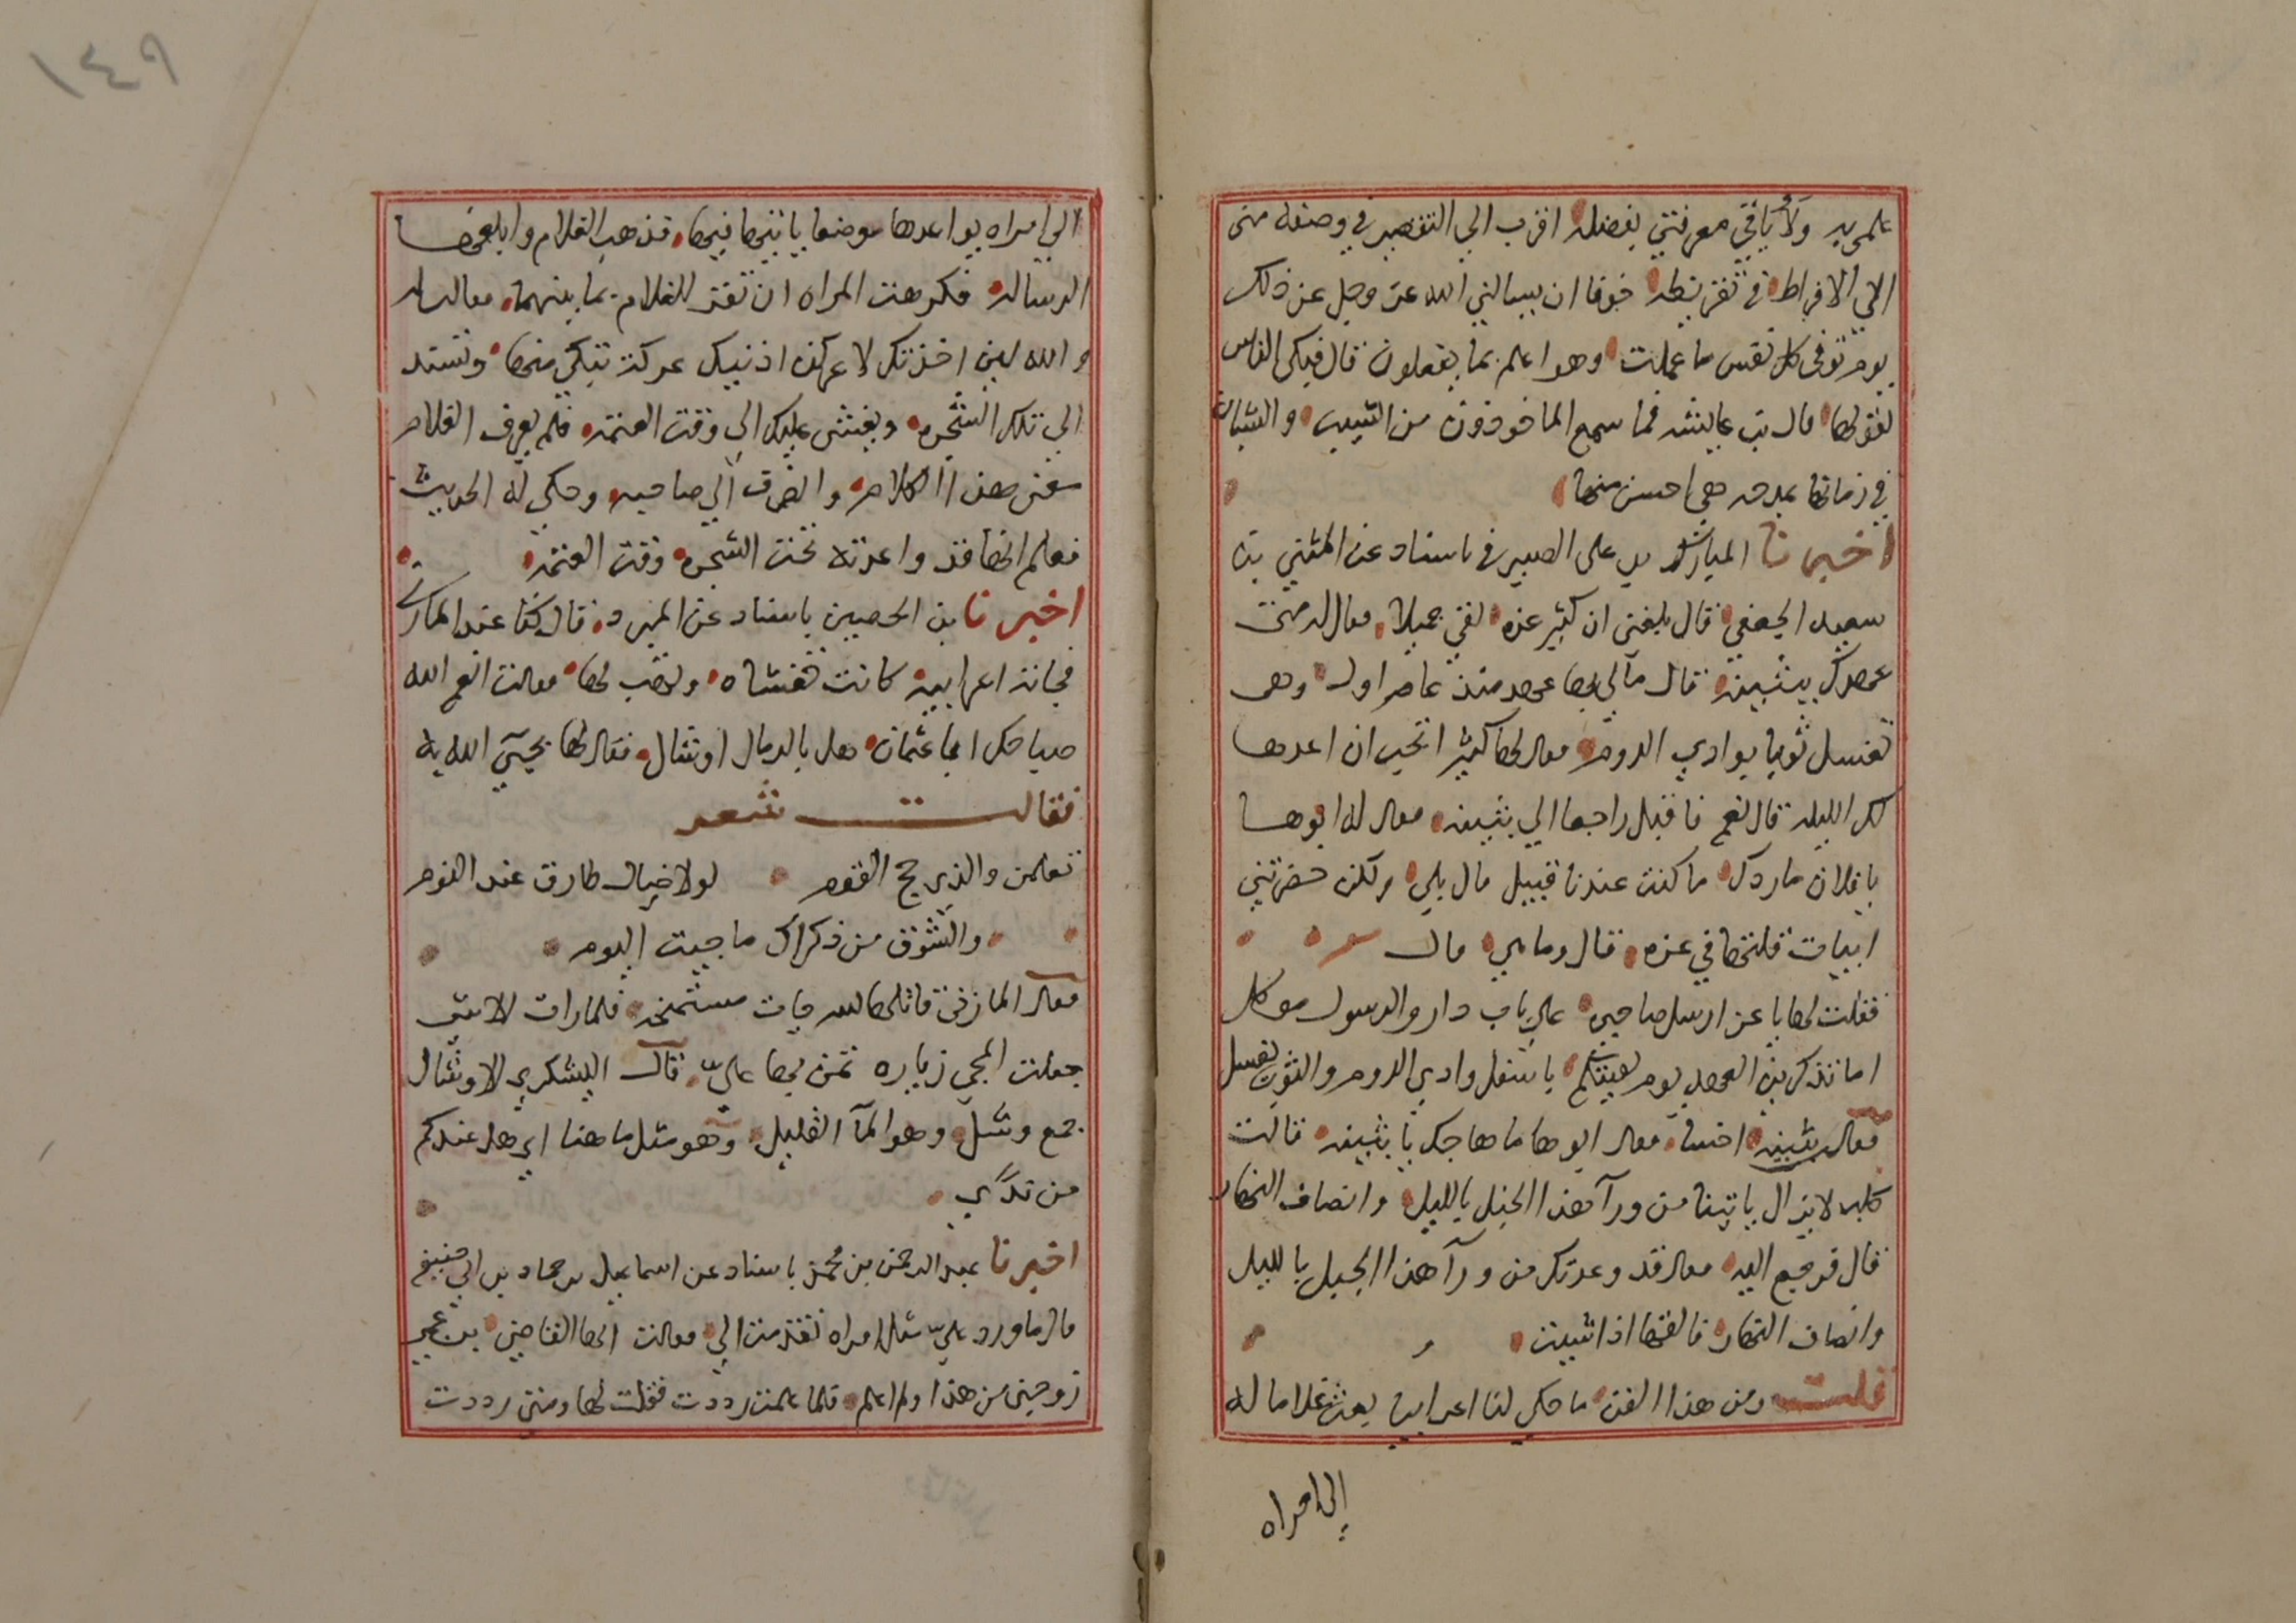 علمى به ولا باقي معرفتي بفضله اقرب الي التقصير في وصفه مني
الي الافراط في تقريظه خوفا ان يسالني الله عز وجل عن ذلك
يوم توفى كل نفس ما عملت وهو اعلم بما يفعلون قال فبكى الناس
لقولها قال بن عايشه فما سمع الماخوذون من الشيب والشبان
في زمانها بمدحه هي احسن منها
اخبرنا المبارك بن علي الصيرفي باسناد عن المثني بن
سعيد الجعفي قال بلغني ان كثير عزه لقي جميلا فقال له متى
عهدك ببثينة قال مالي بها عهد منذ عام اول وهي
تغسل ثوبا بوادي الدوم فقال لها كثير اتحب ان اعدها
لك الليلة قال نعم فاقبل راجعا الي بثينه فقال له ابوها
يا فلان ما ردك ما كنت عندنا قبيل قال بلي ولكن حضرتني
ابيات قلتها في عزه قال وما هي قال
فقلت لها يا عز ارسل صاحبي علي باب دار والرسول موكل
اما تذكرين العهد يوم لقيتكم باسفل وادي الدوم والثوب يغسل
فقال بثينه اخسا فقال ابوها ما هاجك يا بثينه قالت
كلب لا يزال ياتينا من ورآ هذا الجبل بالليل وانصاف النهار
قال فرجع اليه فقال قد وعدتك من ورآ هذا الجبل بالليل
وانصاف النهار فالقها اذا شيت
قلت ومن هذا الفن ما حكي لنا اعرابيا بعث غلاما له
الي امراه
١٤٩
الي امراه يواعدها موضعا ياتيها فيها فذهب الغلام وابلغها
الرساله فكرهت المراه ان تقر للغلام بما بينهما فقالت
والله لين اخذتك لاعركن اذنيك عركة تبكي منها وتستند
الي تلك الشجره ويغشى عليك الي وقت العتمه فلم يعرف الغلام
معني هذا الكلام وانصرف الي صاحبه وحكي له الحديث
فعلم انها قد واعدته تحت الشجره وقت العتمه
اخبرنا بن الحصين باسناد عن المبرد قال كنا عند المازني
فجاته اعرابيه كانت تغشاه ويهب لها فقالت انعم الله
صباحك ابا عثمان هل بالرمال اوشال فقال لها يجي الله به
فقالت شعر
تعلمن والذي حج القوم لولا خيال طارق عند النوم
والشوق من ذكراك ما جيت اليوم
فقال المازني قاتلها الله جات مستمنحه فلما رات الا شي
جعلت المجي زياره تمن بها علي قال اليشكري الاوشال
جمع وشل وهو المآ القليل وهو مثل هاهنا اي هل عندكم
من ندي
اخبرنا عبد الرحمن بن محمد باسناد عن اسماعيل بن حماد بن ابي حنيفه
قال ما ورد علي مثل امراه تقدمت الي فقالت ايها القاضي بن عمي
زوجني من هذا ولم اعلم فلما علمت رددت فقلت لها ومتى رددت